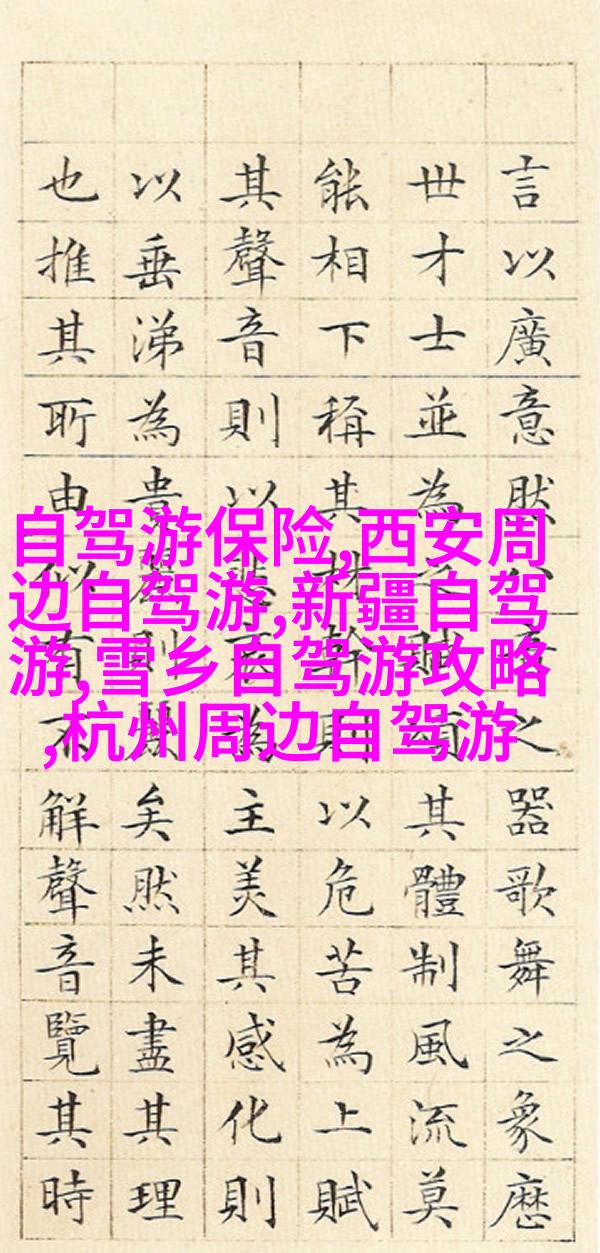 自驾游保险,西安周
边自驾游,新疆自驾
游,雪乡自驾游攻略
,杭州周边自驾游
言以廣意然之器歌舞之象歷
世才士並為之賦頌其體制風流莫
能相下稱其材幹則以危苦為上賦
其聲音則以悲哀為主美其感化則
以垂涕為貴麗則麗矣然未盡其理
也推其所由似有不解聲音覽其時